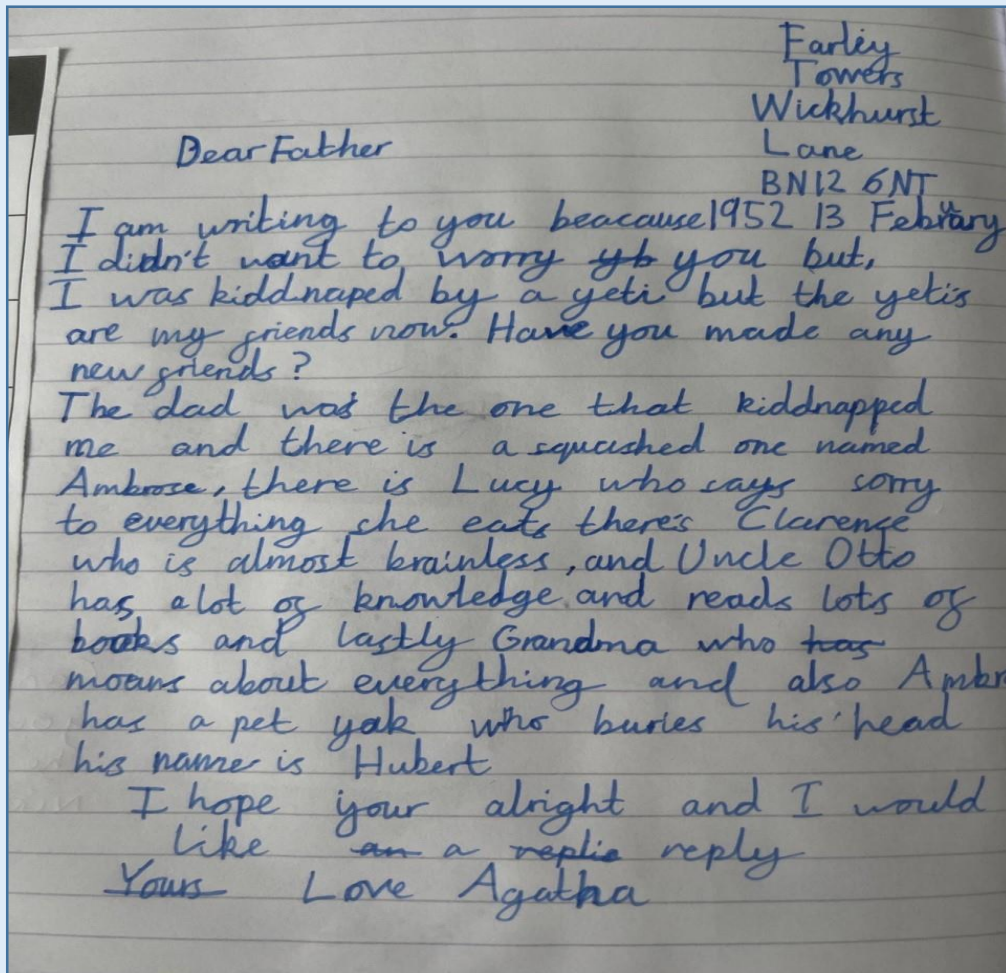 Farley
Towers
Wickhurst
Lane
BN12 6NT
Dear Father
1952 13 Febuary
I am writing to you beacause
I didn't want to worry yb you but,
I was kiddnaped by a yeti but the yetis
are my friends now. Have you made any
new friends?
The dad was the one that kiddnapped
me and there is a squashed one named
Ambrose, there is Lucy who says sorry
to everything she eats there's Clarence
who is almost brainless, and Uncle Otto
has a lot of knowledge and reads lots of
books and lastly Grandma who has
moans about everything and also Ambr
has a pet yak who buries his head
his name is Hubert
I hope your alright and I would
like an a replie reply
Yours Love Agatha